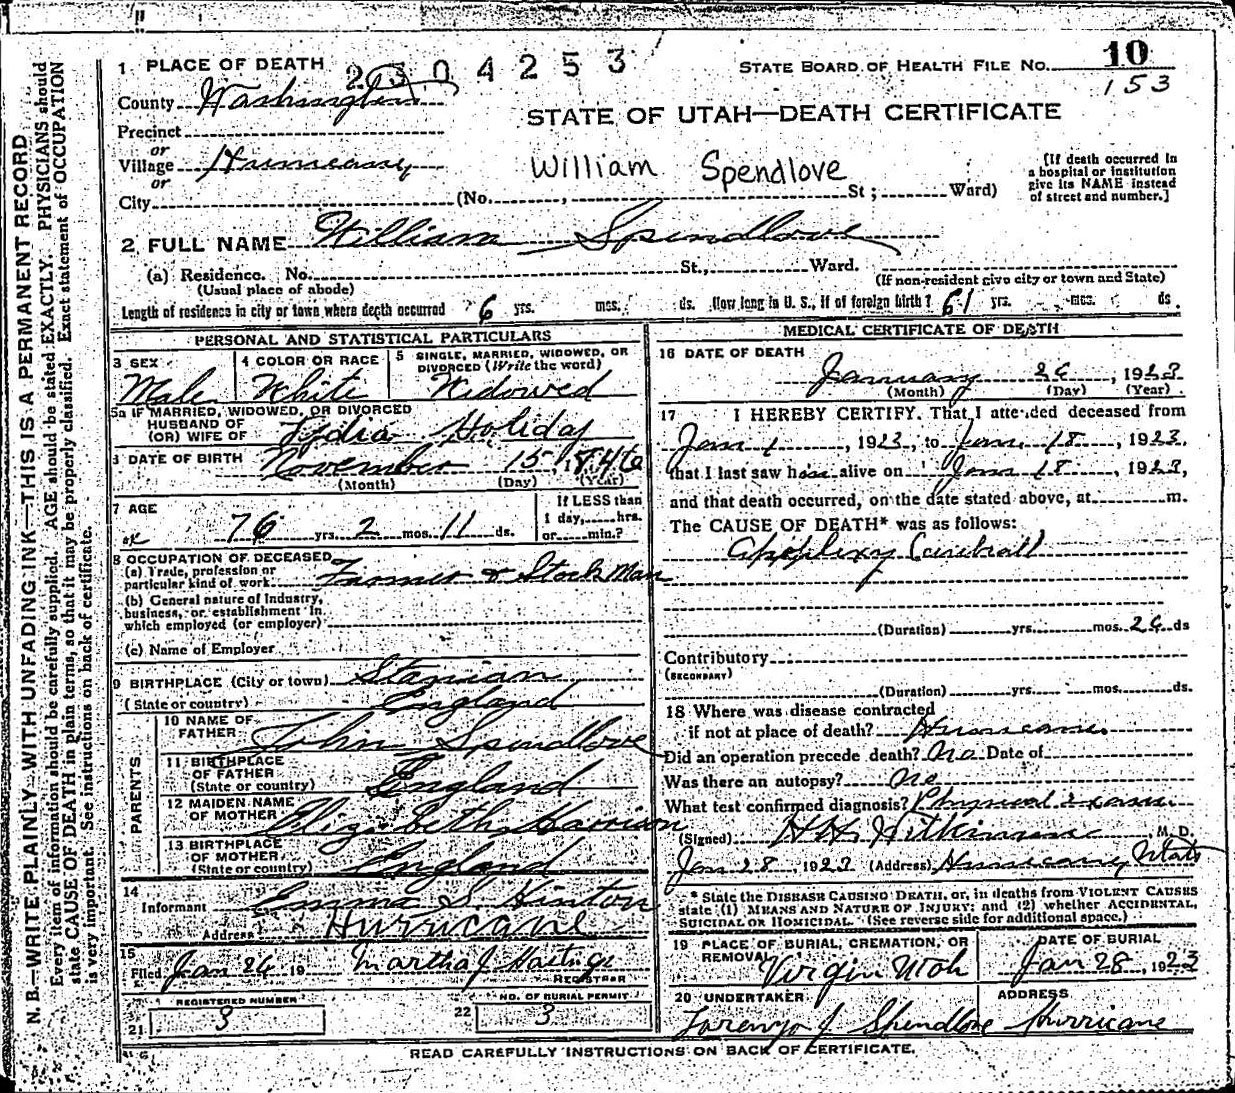 10
2304253
STATE BOARD OF HEALTH FILE No.
153
1 PLACE OF DEATH
County Washington
STATE OF UTAH—DEATH CERTIFICATE
Precinct
or
Village Hurricane
William Spendlove
[If death occurred in a hospital or institution give its NAME instead of street and number.]
or
City (No. , St; Ward)
2. FULL NAME William Spendlove
(a) Residence. No. St., Ward.
(Usual place of abode)
(If non-resident give city or town and State)
Length of residence in city or town where death occurred 6 yrs. mos. ds. How long in U. S., if of foreign birth? 61 yrs. mos. ds.
PERSONAL AND STATISTICAL PARTICULARS
3 SEX
Male
4 COLOR OR RACE
White
5 SINGLE, MARRIED, WIDOWED, OR DIVORCED (Write the word)
Widowed
5a IF MARRIED, WIDOWED, OR DIVORCED
HUSBAND OF
(OR) WIFE OF Lydia Holiday
6 DATE OF BIRTH November 15 1846
(Month) (Day) (Year)
7 AGE
76 yrs. 2 mos. 11 ds.
If LESS than
1 day, hrs.
or min.?
8 OCCUPATION OF DECEASED
(a) Trade, profession or
particular kind of work Farmer & Stock Man
(b) General nature of Industry,
business, or establishment in
which employed (or employer)
(c) Name of Employer
9 BIRTHPLACE (City or town)
(State or country) England
PARENTS
10 NAME OF
FATHER John Spendlove
11 BIRTHPLACE
OF FATHER
(State or country) England
12 MAIDEN NAME
OF MOTHER Elizabeth Harrison
13 BIRTHPLACE
OF MOTHER
(State or country) England
14
Informant Emma S. Hinton
Address Hurricane
15
Filed Jan 26 19 Martha J
REGISTRAR
REGISTERED NUMBER
21 3
NO. OF BURIAL PERMIT
22 3
MEDICAL CERTIFICATE OF DEATH
16 DATE OF DEATH
January 26, 1923
(Month) (Day) (Year)
17 I HEREBY CERTIFY. That I attended deceased from
Jan 1, 1923, to Jan. 18, 1923,
that I last saw him alive on Jan 18, 1923,
and that death occurred, on the date stated above, at m.
The CAUSE OF DEATH* was as follows:
Apoplexy (cerebral)
(Duration) yrs. mos. 26 ds
Contributory
(SECONDARY)
(Duration) yrs. mos. ds.
18 Where was disease contracted
if not at place of death? Hurricane
Did an operation precede death? No Date of
Was there an autopsy? No
What test confirmed diagnosis? Physical exam.
(Signed) M. D.
Jan 28, 1923 (Address) Hurricane, Utah
* State the DISEASE CAUSING DEATH, or, in deaths from VIOLENT CAUSES
state (1) MEANS AND NATURE OF INJURY; and (2) whether ACCIDENTAL,
SUICIDAL OR HOMICIDAL. (See reverse side for additional space.)
19 PLACE OF BURIAL, CREMATION, OR
REMOVAL Virgin Utah
DATE OF BURIAL
Jan 28, 1923
20 UNDERTAKER
Lorenzo J. Spendlove
ADDRESS
Hurricane
READ CAREFULLY INSTRUCTIONS ON BACK OF CERTIFICATE.
N. B.—WRITE PLAINLY WITH UNFADING INK—THIS IS A PERMANENT RECORD
Every item of information should be carefully supplied. AGE should be stated EXACTLY. PHYSICIANS should
state CAUSE OF DEATH in plain terms, so that it may be properly classified. Exact statement of OCCUPATION
is very important. See instructions on back of certificate.